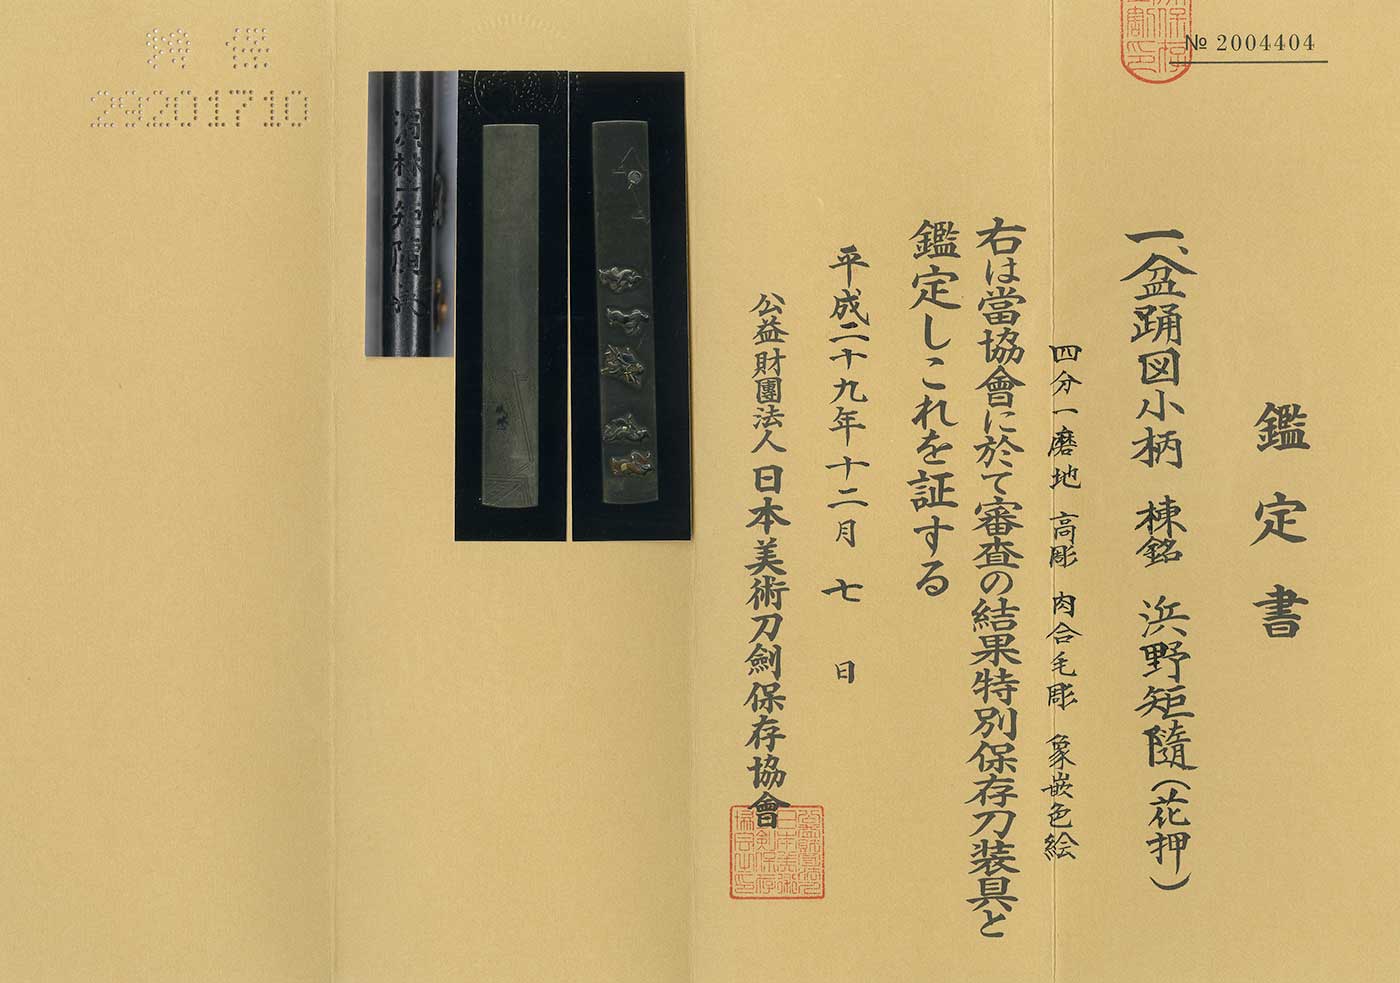 № 2004404
鑑定書
一、盆踊図小柄 棟銘 浜野矩随(花押)
四分一磨地 高彫 肉合毛彫 象嵌色絵
右は當協會に於て審査の結果特別保存刀装具と
鑑定しこれを証する
平成二十九年十二月七日
公益財團法人日本美術刀劍保存協會
特 保
29201710